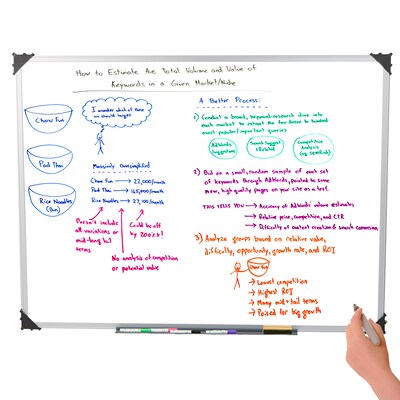 How to Estimate the Total Volume and Value of
Keywords in a Given Market/Niche
Chow Fun
Pad Thai
Rice Noodles
(Bun)
I wonder which of these
we should target
Massively Oversimplified
Chow Fun → 22,000/month
Pad Thai → 165,000/month
Rice Noodles → 27,100/month
Doesn't include
all variations or
mid-long tail
terms
Could be off
by 200%+!
No analysis of competition
or potential value
A Better Process:
1) Conduct a broad, keyword-research dive into
each market to extract the few dozen to hundred
most popular/important queries
AdWords
Suggestions
Search Suggest
+ Related
Competitive
Analysis
(eg SEMRush)
2) Bid on a small, random sample of each set
of keywords through AdWords, pointed to some
new, high quality pages on your site as a test.
THIS TELLS YOU → Accuracy of AdWords' volume estimates
→ Relative price, competition, and CTR
→ Difficulty of content creation & search conversion
3) Analyze groups based on relative value,
difficulty, opportunity, growth rate, and ROI
Chow Fun
→ Lowest competition
→ Highest ROI
→ Many mid + tail terms
→ Poised for big growth